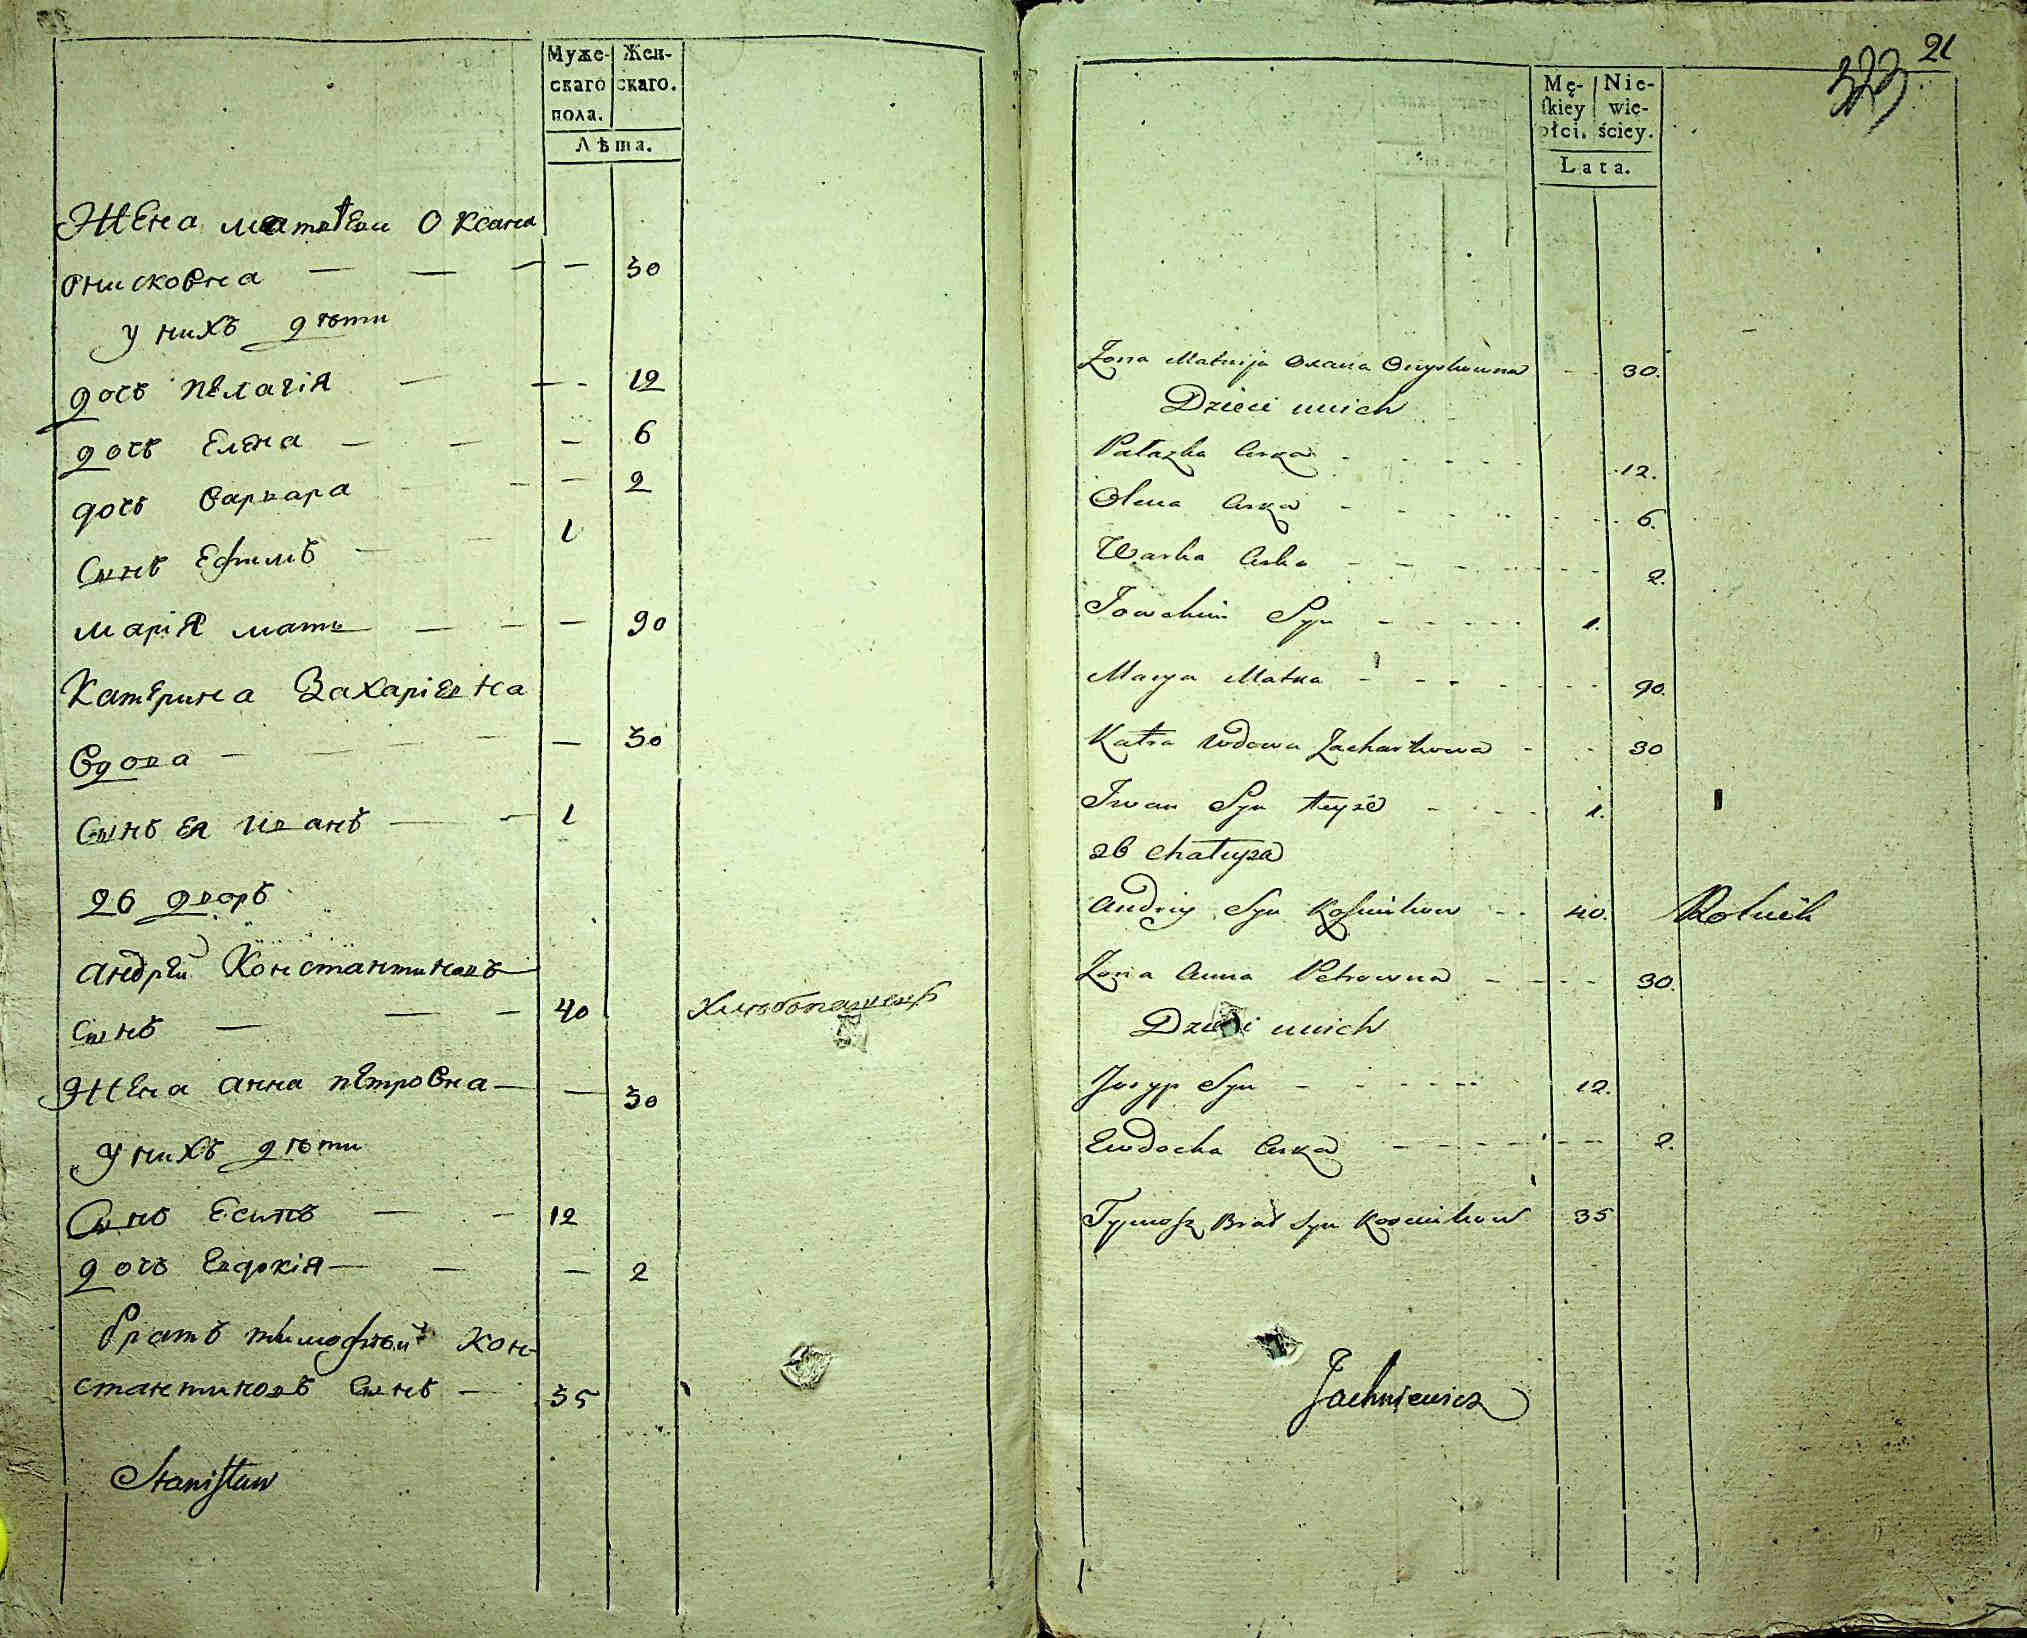 Муже-
скаго
пола.
Жен-
скаго.
Лѣта.
Жена матвѣи Оксана
Онисковна — — — — 30
у нихъ дѣти
дочь пелагія — — - 12
дочь Елена — — — 6
дочь Варвара — — — 2
Сынъ Ефимъ — — 1
марія мать — — — 90
Катерина Захаріевна
Вдова — — — — — 30
Сынъ ея иванъ — — 1
26 дворъ
андрей Константиновъ
Сынъ — — — 40 Хлѣбопашецъ
Жена анна петровна — — 30
у нихъ дѣти
Сынъ Есипъ — — 12
дочь Евдокія — — — 2
братъ тимофѣй Кон-
стантиновъ Сынъ — 35
Stanisław
21
323
Mę-
skiey
płci.
Nie-
wie-
ściey.
Lata.
Żona Matwija Oxana Onyskowna - - 30.
Dzieci unich
Pałazka Curka - - - - 12.
Olena Curka - - - - - 6.
Warka Curka - - - - - 2.
Jowchim Syn - - - - - 1.
Marya Matka - - - - - 90.
Katra Wdowa Zacharkowa - - 30
Iwan Syn teyże - - - - 1.
26 Chałupa
Andriy Syn Kośmikow - - 40. Rolnik
Żona Anna Petrowna - - - - 30.
Dzieci unich
Josyp Syn - - - - - 12.
Ewdocha Curka - - - - - - 2.
Tymosz Brat Syn Kosmikow 35
Jachniewicz